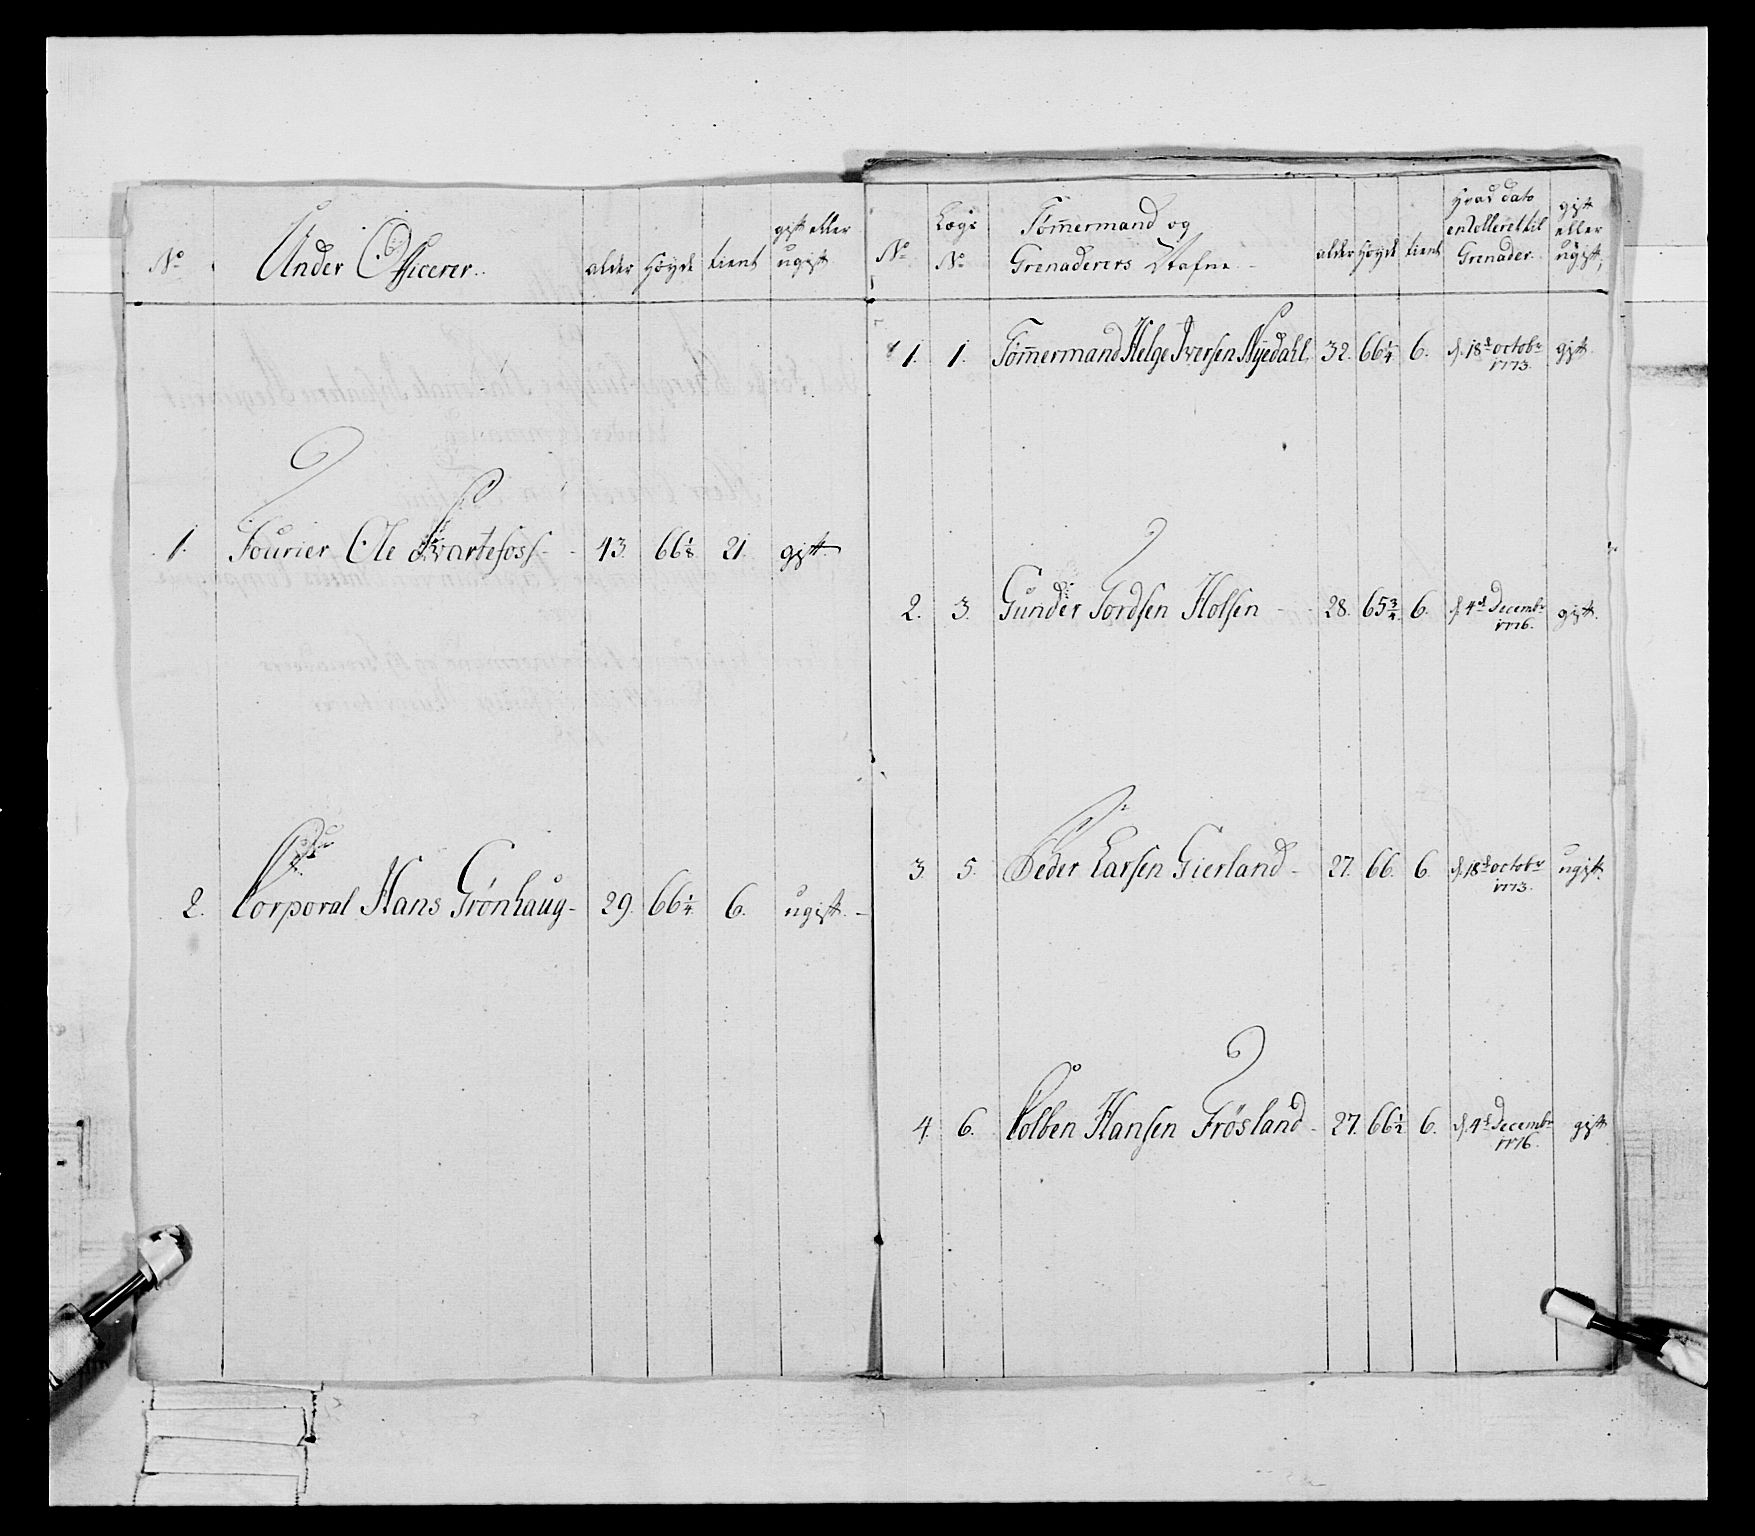 No Under Officerer. alder Høyde tient gift eller ugift
1. Fourier Ole Svartefoss - 43. 66 1/8 21. gift.
2. Corporal Hans Grönhaug - 29. 66 1/4 6. ugift. -
No Lægs No Tømermand og Grenaderers Nafne - alder Høyde tient Hvad dato enrolleret til Grenader. gift eller ugift,
1. 1. Tømermand Helge Iversen Nyedahl, 32. 66 1/4 6. d. 18d octobr 1773. gift.
2. 3. Gunder Tordsen Holsen - - 28. 65 3/4 6. d. 4d Decembr 1776. gift.
3. 5. Peder Larsen Gierland - 27. 66. 6. d. 18d octobr 1773. ugift.
4. 6. Colben Hansen Frösland - 27. 66 1/2 6. d. 4d Decembr 1776. gift.